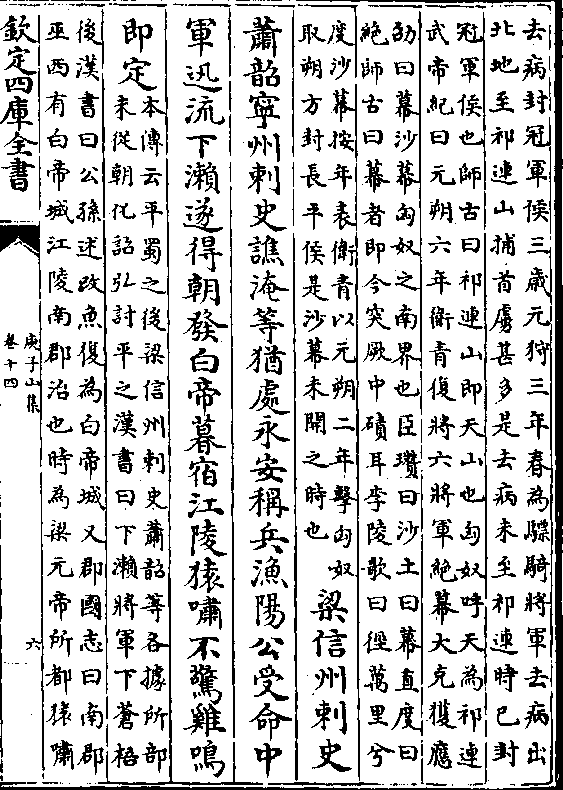 去病封冠軍侯三歲元狩三年春為驃騎將軍去病出
北地至祁連山捕首虜甚多是去病未至祁連時已封
冠軍侯也師古曰祁連山即天山也匈奴呼天為祁連
武帝紀曰元朔六年衛青復將六將軍絶幕大克獲應
劭曰幕沙幕匈奴之南界也臣瓚曰沙土曰幕直度曰
絶師古曰幕者即今突厥中磧耳李陵歌曰徑萬里兮
度沙幕按年表衛青以元朔二年擊匈奴
取朔方封長平侯是沙幕未開之時也
梁信州刺史
蕭韶寧州刺史譙淹等猶處永安稱兵漁陽公受命中
軍迅流下瀨遂得朝發白帝暮宿江陵猿嘯不驚雞鳴
即定
本傳云平蜀之後梁信州刺史蕭韶等各據所部
未從朝化詔弘討平之漢書曰下瀨將軍下蒼梧
後漢書曰公孫述改魚復為白帝城又郡國志曰南郡
巫西有白帝城江陵南郡治也時為梁元帝所都猿嘯
欽定四庫全書
庾子山集
卷十四
六